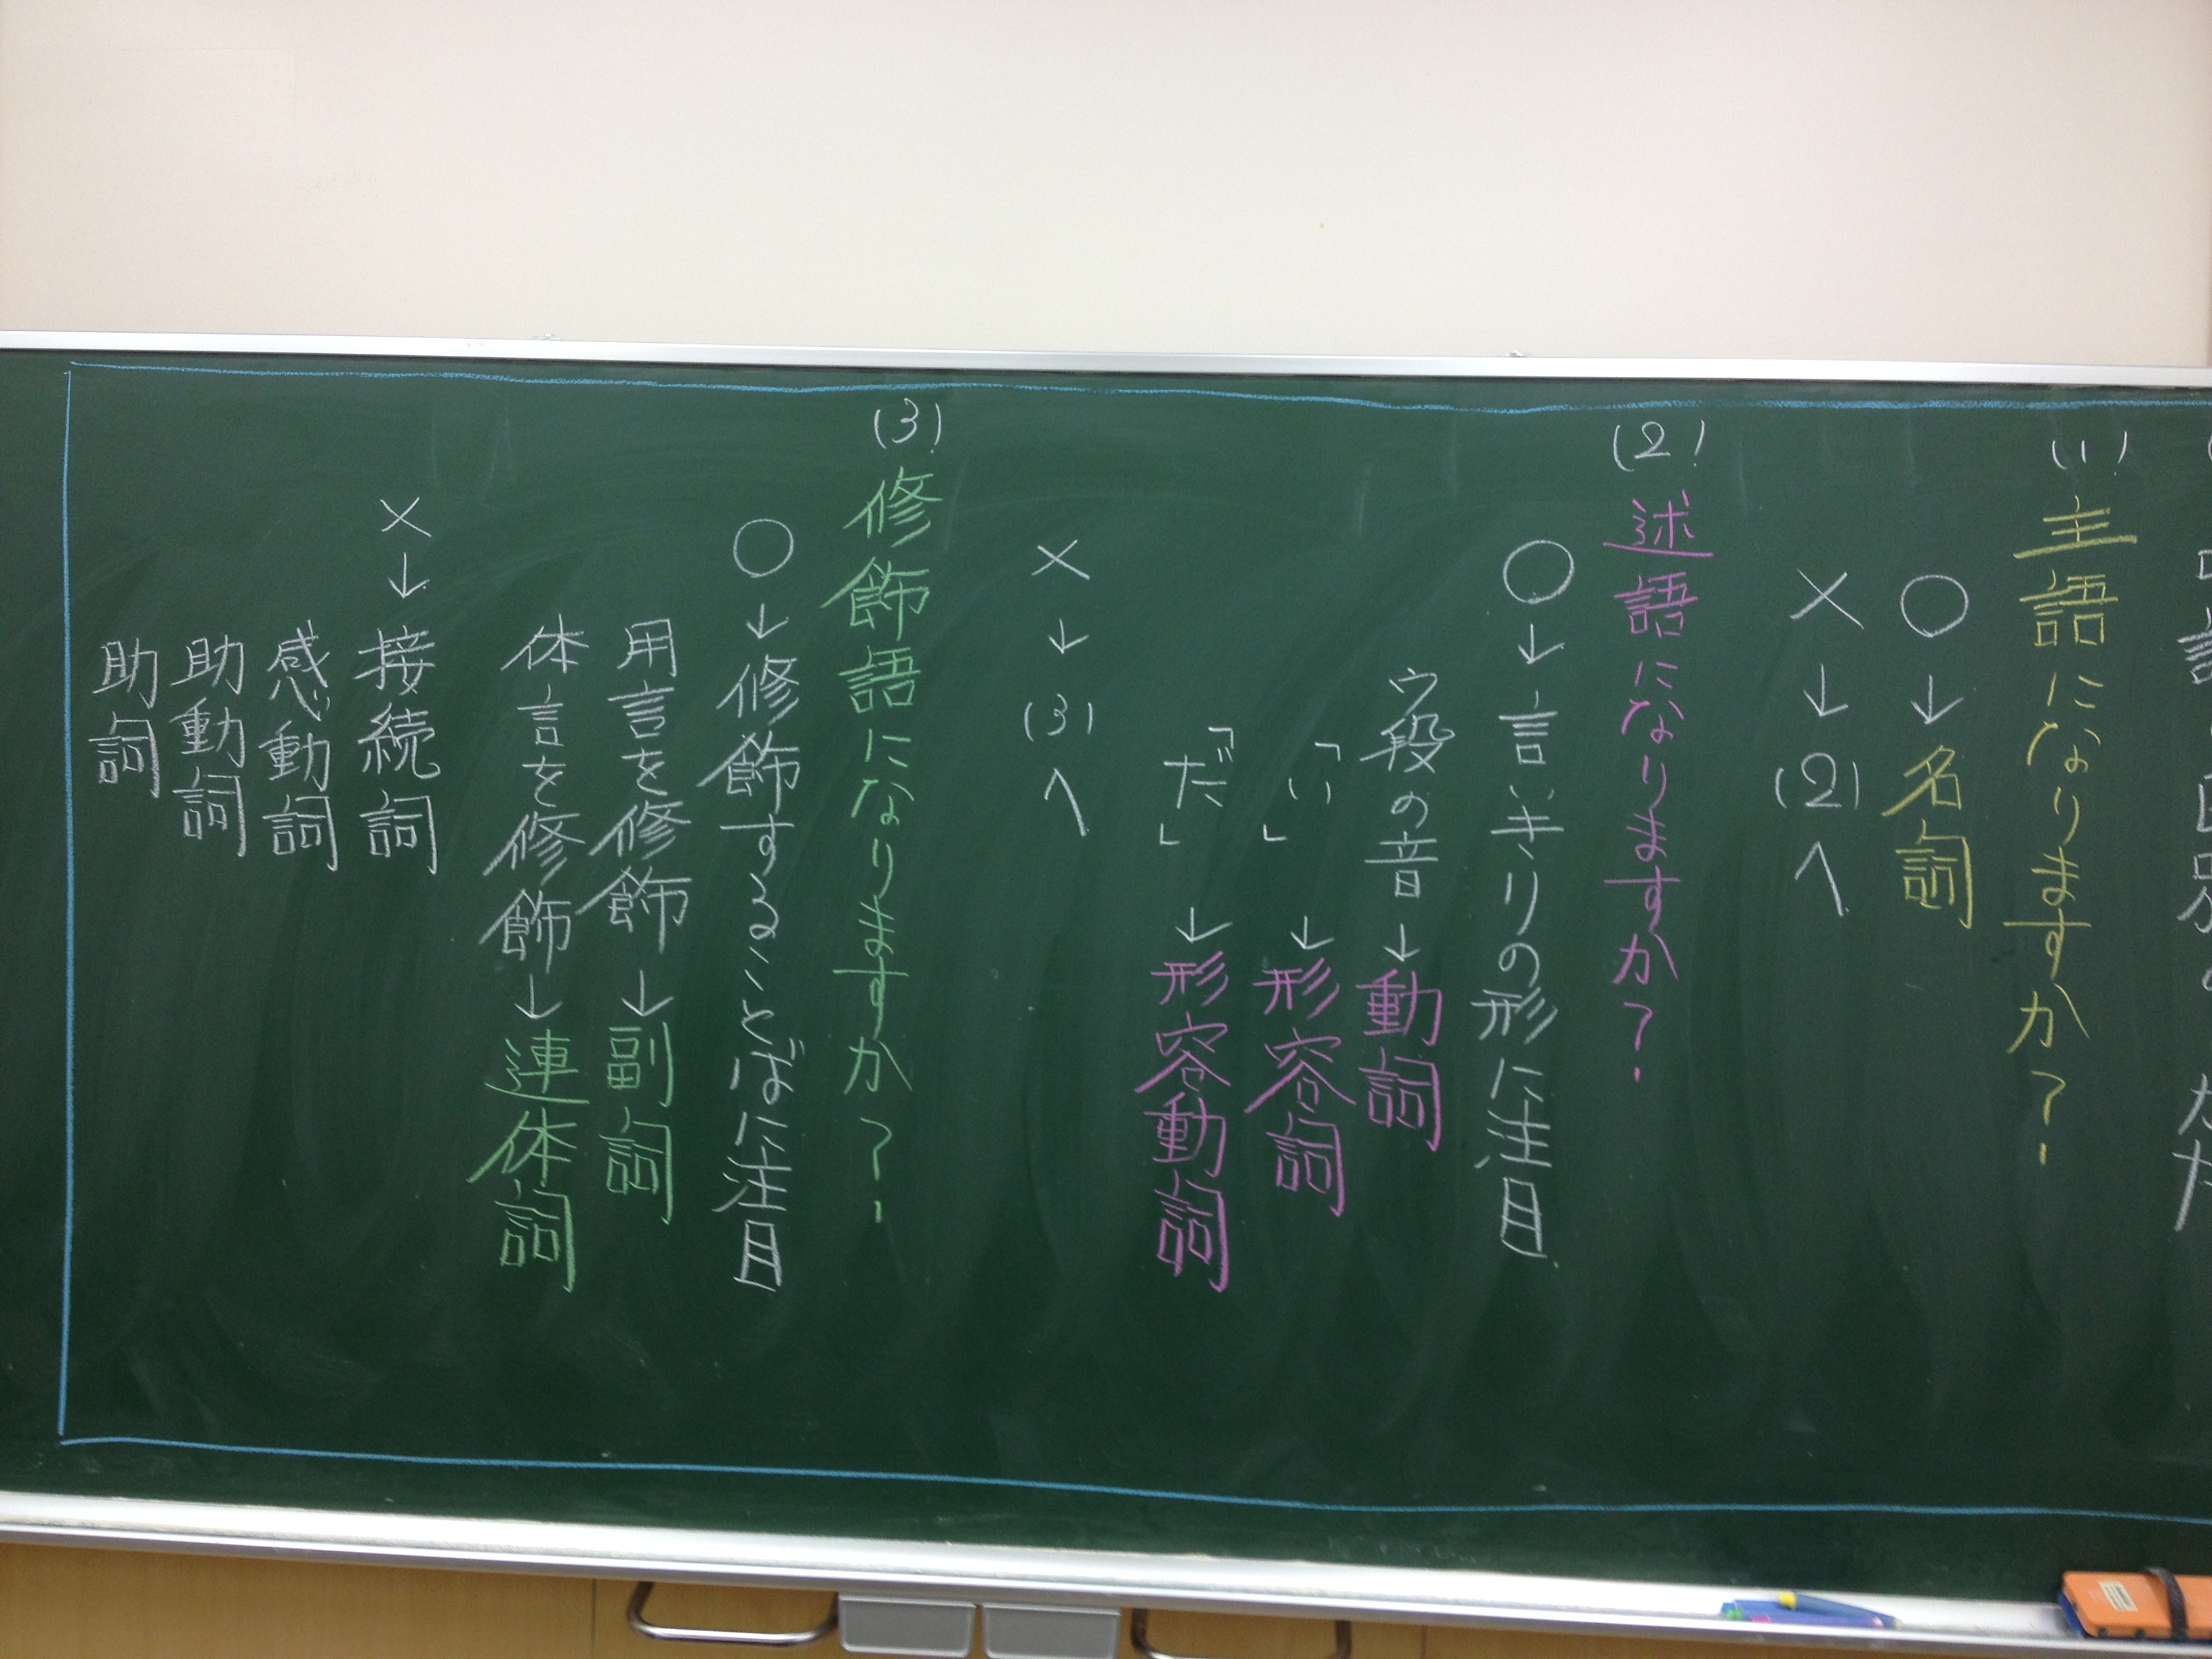 (1)主語になりますか?
○→名詞
×→(2)へ
(2)述語になりますか?
○→言いきりの形に注目
ウ段の音→動詞
「い」→形容詞
「だ」→形容動詞
×→(3)へ
(3)修飾語になりますか?
○→修飾することばに注目
用言を修飾→副詞
体言を修飾→連体詞
×→接続詞
感動詞
助動詞
助詞